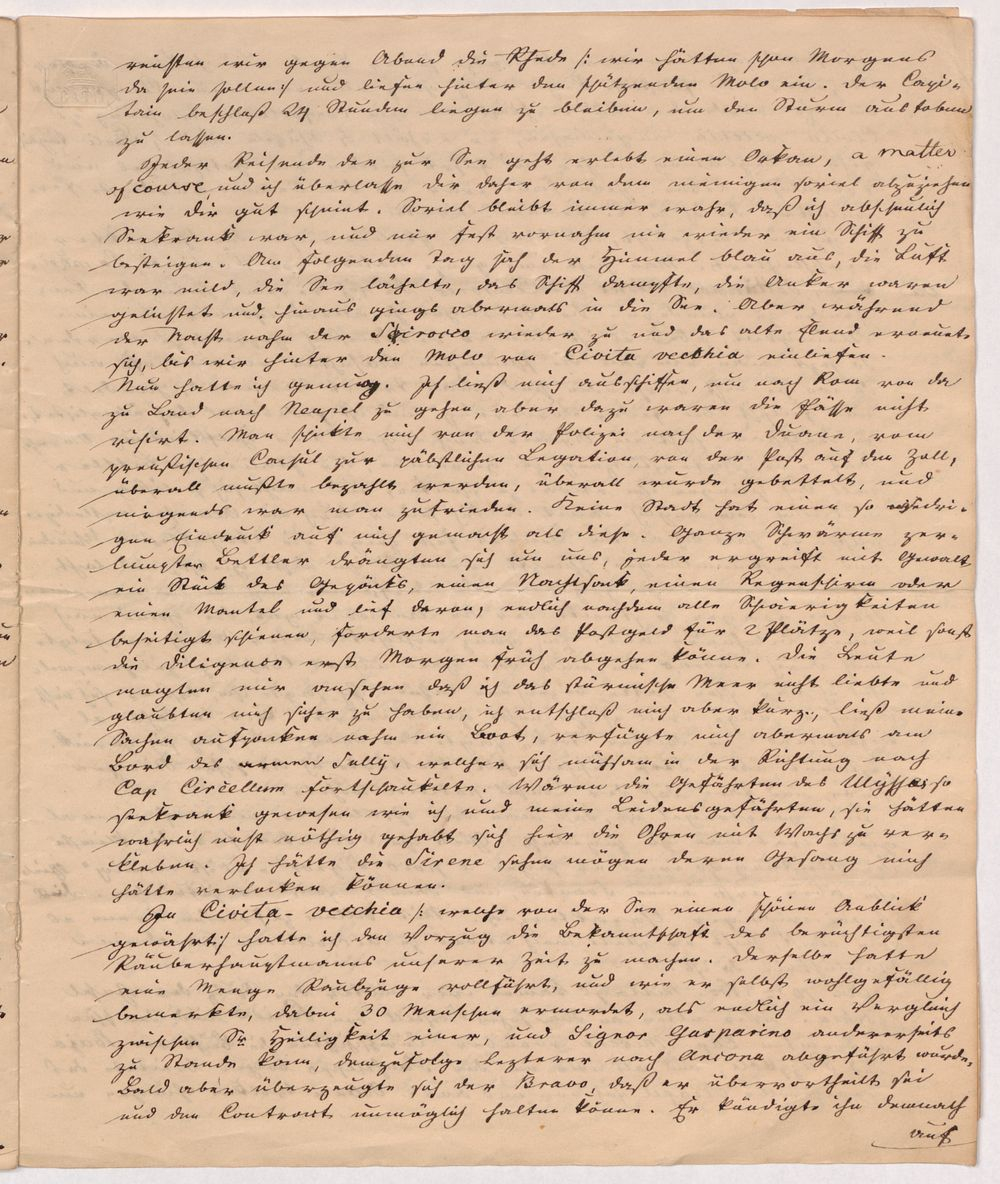 reichten wir gegen Abend die Rhede /: wir hätten schon Morgens
da sein sollen :/ und liefen hinter den schützenden Molo ein. Der Capi-
tain beschloß 24 Stunden liegen zu bleiben, um den Sturm austoben
zu lassen.
Jeder Reisende der zur See geht erlebt einen Orkan, a matter
of course und ich überlasse Dir daher von dem meinigen soviel abzuziehen
wie Dir gut scheint. Soviel bleibt immer wahr, daß ich abscheulich
Seekrank war, und mir fest vornahm nie wieder ein Schiff zu
besteigen. Am folgenden Tag sah der Himmel blau aus, die Luft
war mild, die See lächelte, das Schiff dampfte, die Anker waren
gelichtet und hinaus gings abermals in die See. Aber während
der Nacht nahm der Scirocco wieder zu und das alte Elend erneute
sich, bis wir hinter den Molo von Civita vecchia einliefen.
Nun hatte ich genung. Ich ließ mich ausschiffen, um nach Rom von da
zu Land nach Neapel zu gehen, aber dazu waren die Pässe nicht
visirt. Man schickte mich von der Polizei nach der Duane, vom
preußischen Consul zur päbstlichen Legation, von der Post auf den Zoll,
überall mußte bezahlt werden, überall wurde gebettelt, und
nirgends war man zufrieden. Keine Stadt hat einen so niedri-
gen Eindruck auf mich gemacht als diese. Ganze Schwärme zer-
lumpter Bettler drängten sich um uns, jeder ergreift mit Gewalt
ein Stück des Gepäcks, einen Nachtsack, einen Regenschirm oder
einen Mantel und lief davon, endlich nachdem alle Schwierigkeiten
beseitigt schienen, forderte man das Postgeld für 2 Plätze, weil sonst
die Diligence erst Morgen früh abgehen könne. Die Leute
mogten mir ansehen daß ich das stürmische Meer nicht liebte und
glaubten mich sicher zu haben, ich entschloß mich aber kurz, ließ meine
Sachen aufpacken nahm ein Boot, verfügte mich abermals am
Bord des armen Sully, welcher sich mühsam in der Richtung nach
Cap Circellum fortschaukelte. Wären die Gefährten des Ulysses so
seekrank gewesen wie ich, und meine Leidensgefährten, sie hätten
wahrlich nicht nöthig gehabt sich hier die Ohren mit Wachs zu ver-
kleben. Ich hätte die Sirene sehen mögen deren Gesang mich
hätte verlocken können.
In Civita-vecchia /: welche von der See einen schönen Anblick
gewährt :/ hatte ich den Vorzug die Bekanntschaft des berüchtigsten
Räuberhauptmanns unserer Zeit zu machen. Derselbe hatte
eine Menge Raubzüge vollführt, und wie er selbst wohlgefällig
bemerkte, dabei 30 Menschen ermordet, als endlich ein Vergleich
zwischen Sr. Heiligkeit einer, und Signor Gasparino andererseits
zu Stande kam, demzufolge Lezterer nach Ancona abgeführt wurde.
Bald aber überzeugte sich der Bravo, daß er übervortheilt sei
und den Contract unmöglich halten könne. Er kündigte ihn demnach
auf